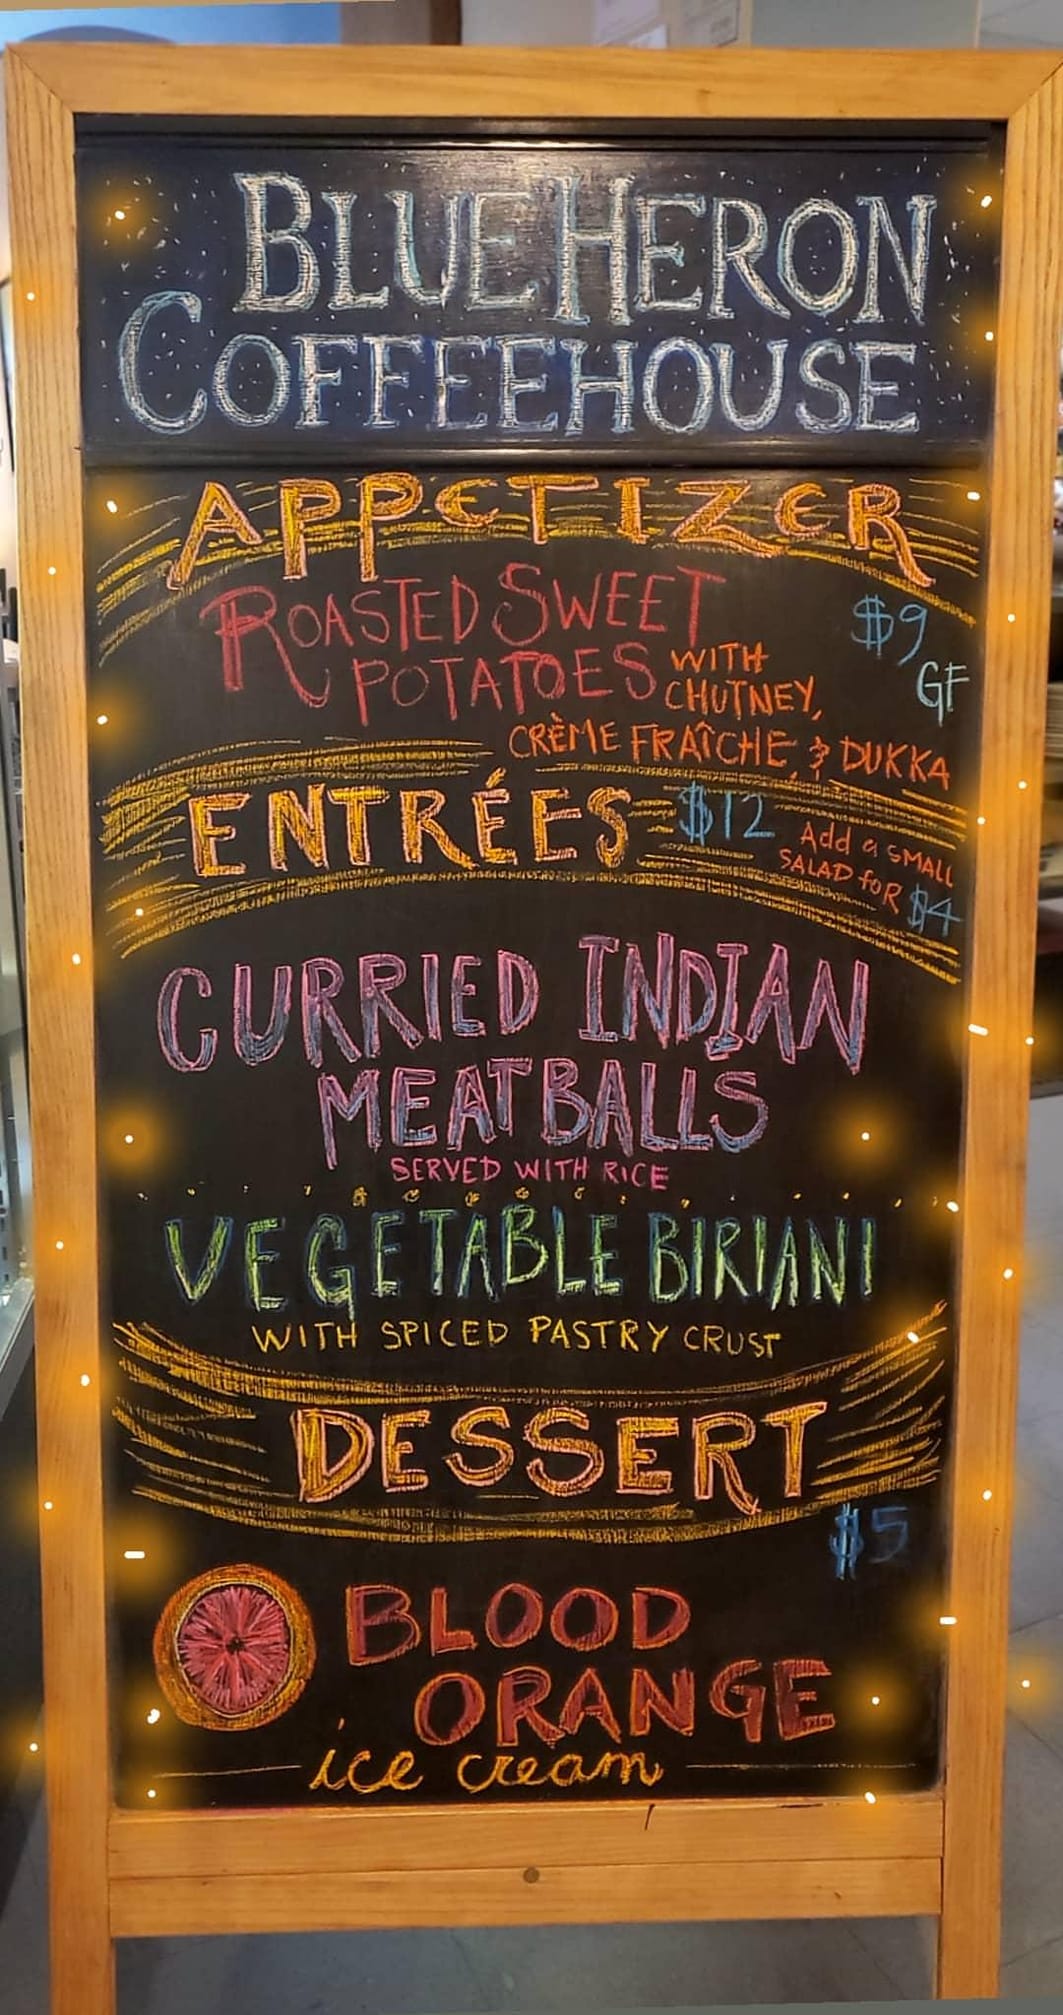 BLUE HERON
COFFEEHOUSE
APPETIZER
ROASTED SWEET
POTATOES WITH
CHUTNEY,
CRÈME FRAÎCHE, & DUKKA
$9
GF
ENTRÉES $12
Add a SMALL
SALAD for $4
CURRIED INDIAN
MEATBALLS
SERVED WITH RICE
VEGETABLE BIRIANI
WITH SPICED PASTRY CRUST
DESSERT
$5
BLOOD
ORANGE
ice cream